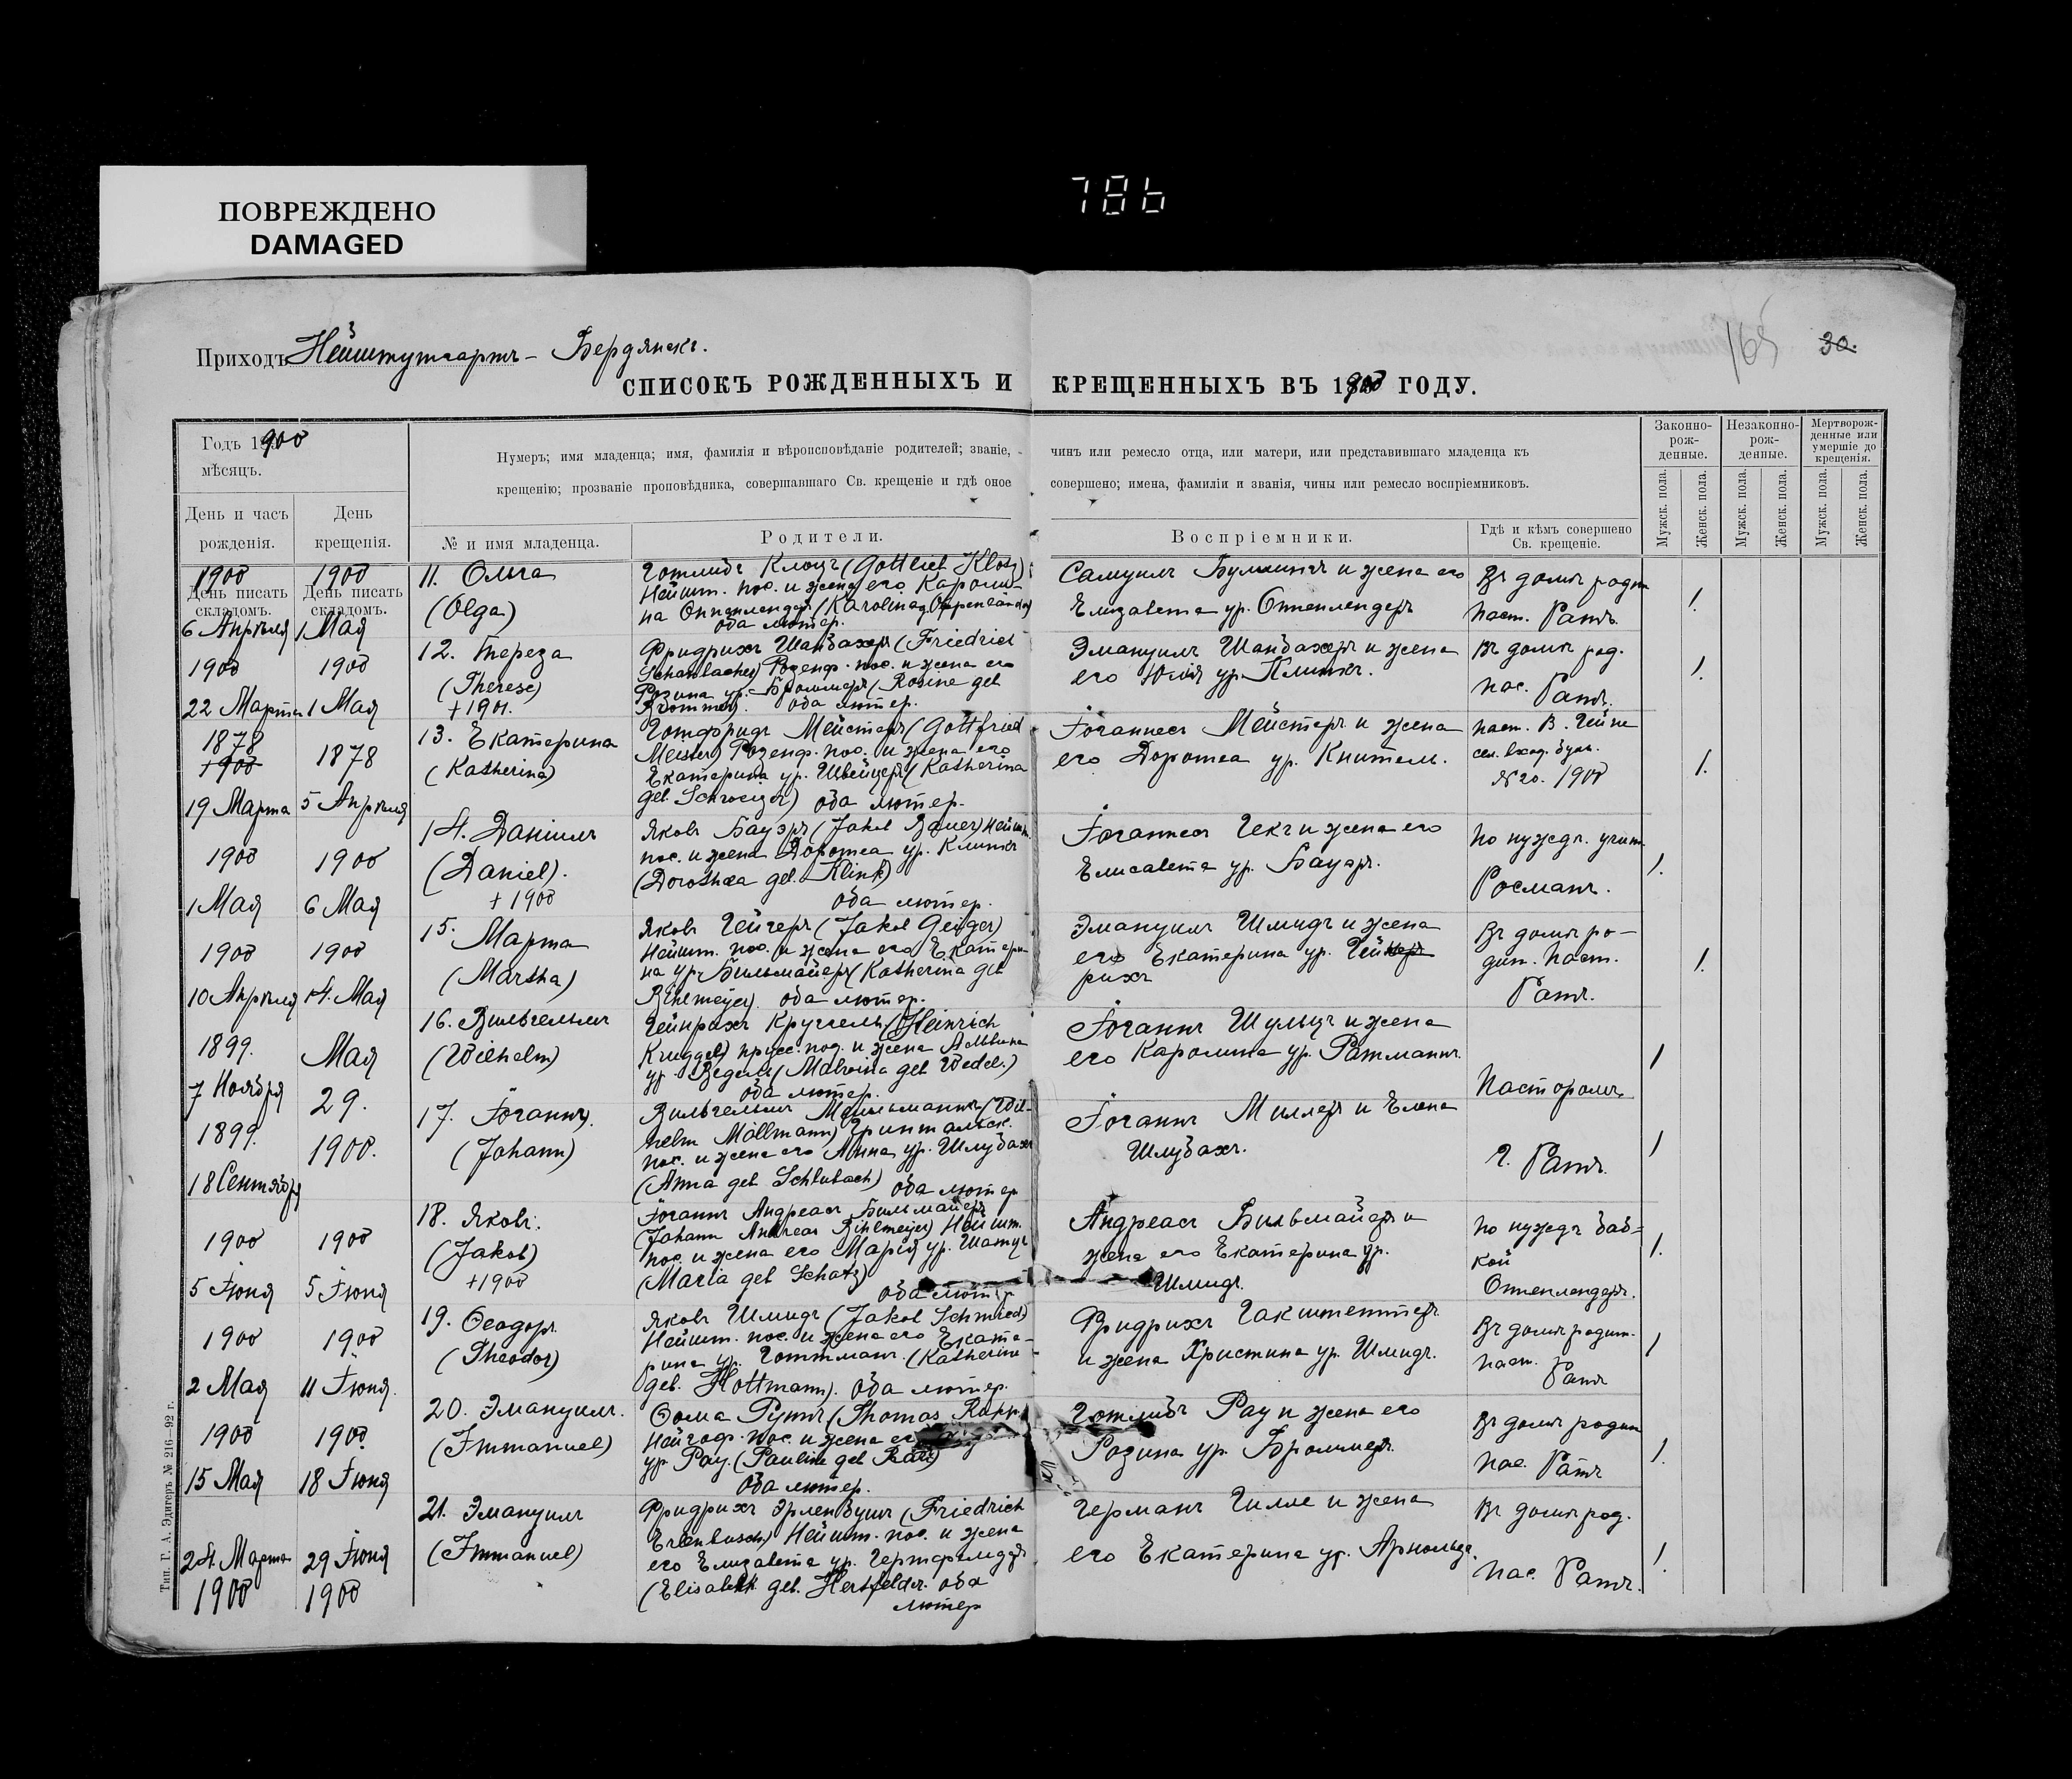 ПОВРЕЖДЕНО
DAMAGED
786
Приходъ Нейштутгартъ - Бердянскъ.
165
30.
СПИСОКЪ РОЖДЕННЫХЪ И КРЕЩЕННЫХЪ ВЪ 1900 ГОДУ.
Годъ 1900
мѣсяцъ.
Нумеръ; имя младенца; имя, фамилія и вѣроисповѣданіе родителей; званіе, чинъ или ремесло отца, или матери, или представившаго младенца къ
крещенію; прозваніе проповѣдника, совершавшаго Св. крещеніе и гдѣ оное совершено; имена, фамиліи и званія, чины или ремесло воспріемниковъ.
Законно-
рож-
денные.
Незаконно-
рож-
денные.
Мертворож-
денные или
умершіе до
крещенія.
День и часъ
рожденія.
День
крещенія.
№ и имя младенца.
Родители.
Воспріемники.
Гдѣ и кѣмъ совершено
Св. крещеніе.
Мужск. пола.
Женск. пола.
Мужск. пола.
Женск. пола.
Мужск. пола.
Женск. пола.
1900
День писать
складомъ.
6 Апрѣля
1900
День писать
складомъ.
1 Мая
11. Ольга
(Olga)
Готлибъ Клоцъ (Gottlieb Klotz)
Нейшт. пос. и жена его Кароли-
на Оппенлендеръ (Karolina g. Oppenländer)
оба лютер.
Самуилъ и жена его
Елизавета ур. Оппенлендеръ
Въ домѣ родит
паст. Ратъ.
1.
1900
22 Марта
1900
1 Мая
12. Тереза
(Therese)
+ 1901.
Фридрихъ Шанбахеръ (Friedrich
Schanbacher) Розенф. пос. и жена его
Розина ур. Броммеръ (Rosine geb
Brommer). оба лютер.
Эмануилъ Шанбахеръ и жена
его Юлія ур. Клинкъ.
Въ домѣ род.
пас. Ратъ.
1.
1878
1900
19 Марта
1878
5 Апрѣля
13. Екатерина
(Katherina)
Готфридъ Мейстеръ (Gottfried
Meister) Розенф. пос. и жена его
Екатерина ур. Швейцеръ (Katherina
geb. Schweizer) оба лютер.
Іоганнесъ Мейстеръ и жена
его Доротеа ур. Книтель.
паст. В. Гейне
см. вход. бум.
№ 20. 1900
1.
1900
1 Мая
1900
6 Мая
14. Даніилъ
(Daniel).
+ 1900
Яковъ Бауэръ (Jakob Bauer) Нейшт.
пос. и жена Доротеа ур. Клинкъ
(Dorothea geb. Klink)
оба лютер.
Іоганнесъ Гекъ и жена его
Елисавета ур. Бауэръ.
по нуждѣ. учит.
Росманъ.
1.
1900
10 Апрѣля
1900
14. Мая
15. Марта
(Martha)
Яковъ Гейгеръ (Jakob Geiger)
Нейшт. пос. и жена его Екатери-
на ур. Бильмайеръ (Katherina geb
Bihlmeyer). оба лютер.
Эмануилъ Шмидъ и жена
его Екатерина ур. Гейн
рихъ
Въ домѣ ро-
дит. паст.
Ратъ.
1.
1899.
7 Ноября
Мая
29.
1900.
16. Вильгельмъ
(Wilhelm)
Гейнрихъ Круггель (Heinrich
Kruggel) прусс. под. и жена Мальвина
ур. Ведель (Malwina geb Wedel.)
оба лютер.
Іоганнъ Шульцъ и жена
его Каролина ур. Ратманъ.
Пасторомъ
1
1899.
18 Сентября
17. Іоганнъ.
(Johann)
Вильгельмъ (Wil-
helm Möllmann) Грунтальск.
пос. и жена его Анна ур. Шлубахъ
(Anna geb Schlubach) оба лютер
Іоганнъ Миллеръ и Елена
Шлубахъ.
Г. Ратъ.
1
1900
5 Іюня
1900
5 Іюня
18. Яковъ.
(Jakob)
+ 1900
Іоганнъ Андреасъ Бильмайеръ
(Johann Andreas Bihlmeyer) Нейшт.
пос. и жена его Марія ур. Шатцъ
(Maria geb Schatz) оба лютер
Андреасъ Бильмайеръ и
жена его Екатерина ур.
Шмидъ.
по нуждѣ баб=
кой
Оппенлендеръ.
1.
1900
2 Мая
1900
11 Іюня.
19. Ѳеодоръ
(Theodor)
Яковъ Шмидъ (Jakob Schmied)
Нейшт. пос. и жена его Екате-
рина ур. Готтманъ. (Katherine
geb. Hottmann). оба лютер.
Фридрихъ Гакштеттеръ
и жена Христина ур. Шмидъ.
Въ домѣ родит.
паст. Ратъ
1
1900
15 Мая
1900.
18 Іюня
20. Эмануилъ.
(Immanuel)
Ѳома (Thomas
Нейгоф. пос. и жена его
ур. Рау. (Pauline geb Rau)
оба лютер.
Готлибъ Рау и жена его
Розина ур. Броммеръ.
Въ домѣ родит
пас. Ратъ
1.
24. Марта
1900
29 Іюня
1900
21. Эмануилъ
(Immanuel)
Фридрихъ Эрленбушъ (Friedrich
Erlenbusch) Нейшт. пос. и жена
его Елизавета ур. Гертфельдеръ
(Elisabeth geb. Hertfelder. оба
лютер
Германъ Гилле и жена
его Екатерина ур. Арнольдъ.
Въ домѣ род.
пас. Ратъ.
1.
Тип. Г. А. Эдигеръ № 216—92 г.